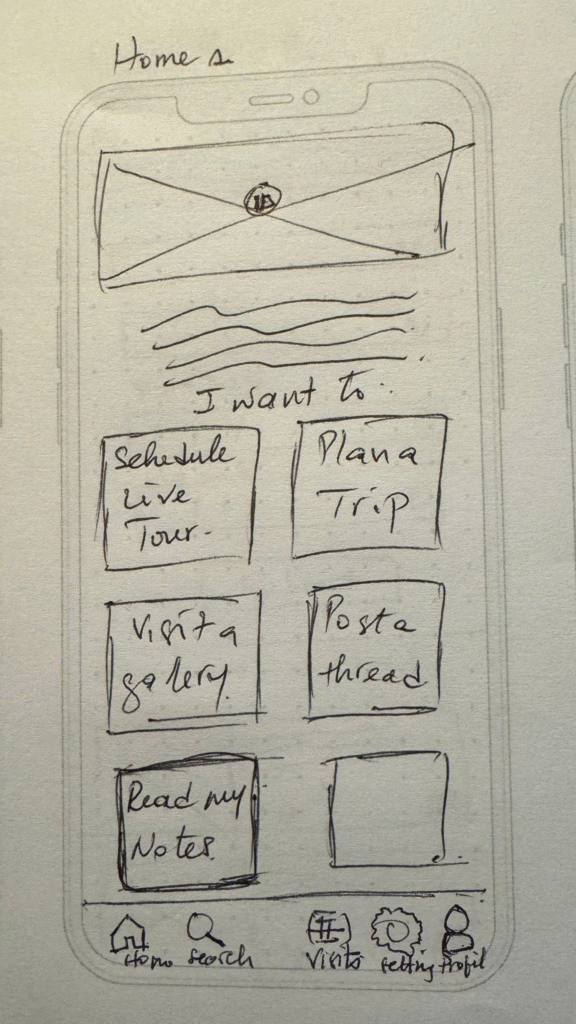 Home
I want to..
Schedule
Live
Tour.
Plan a
Trip
Visit a
gallery.
Post a
thread
Read my
Notes.
Home
Search
Visits
Setting
Profil